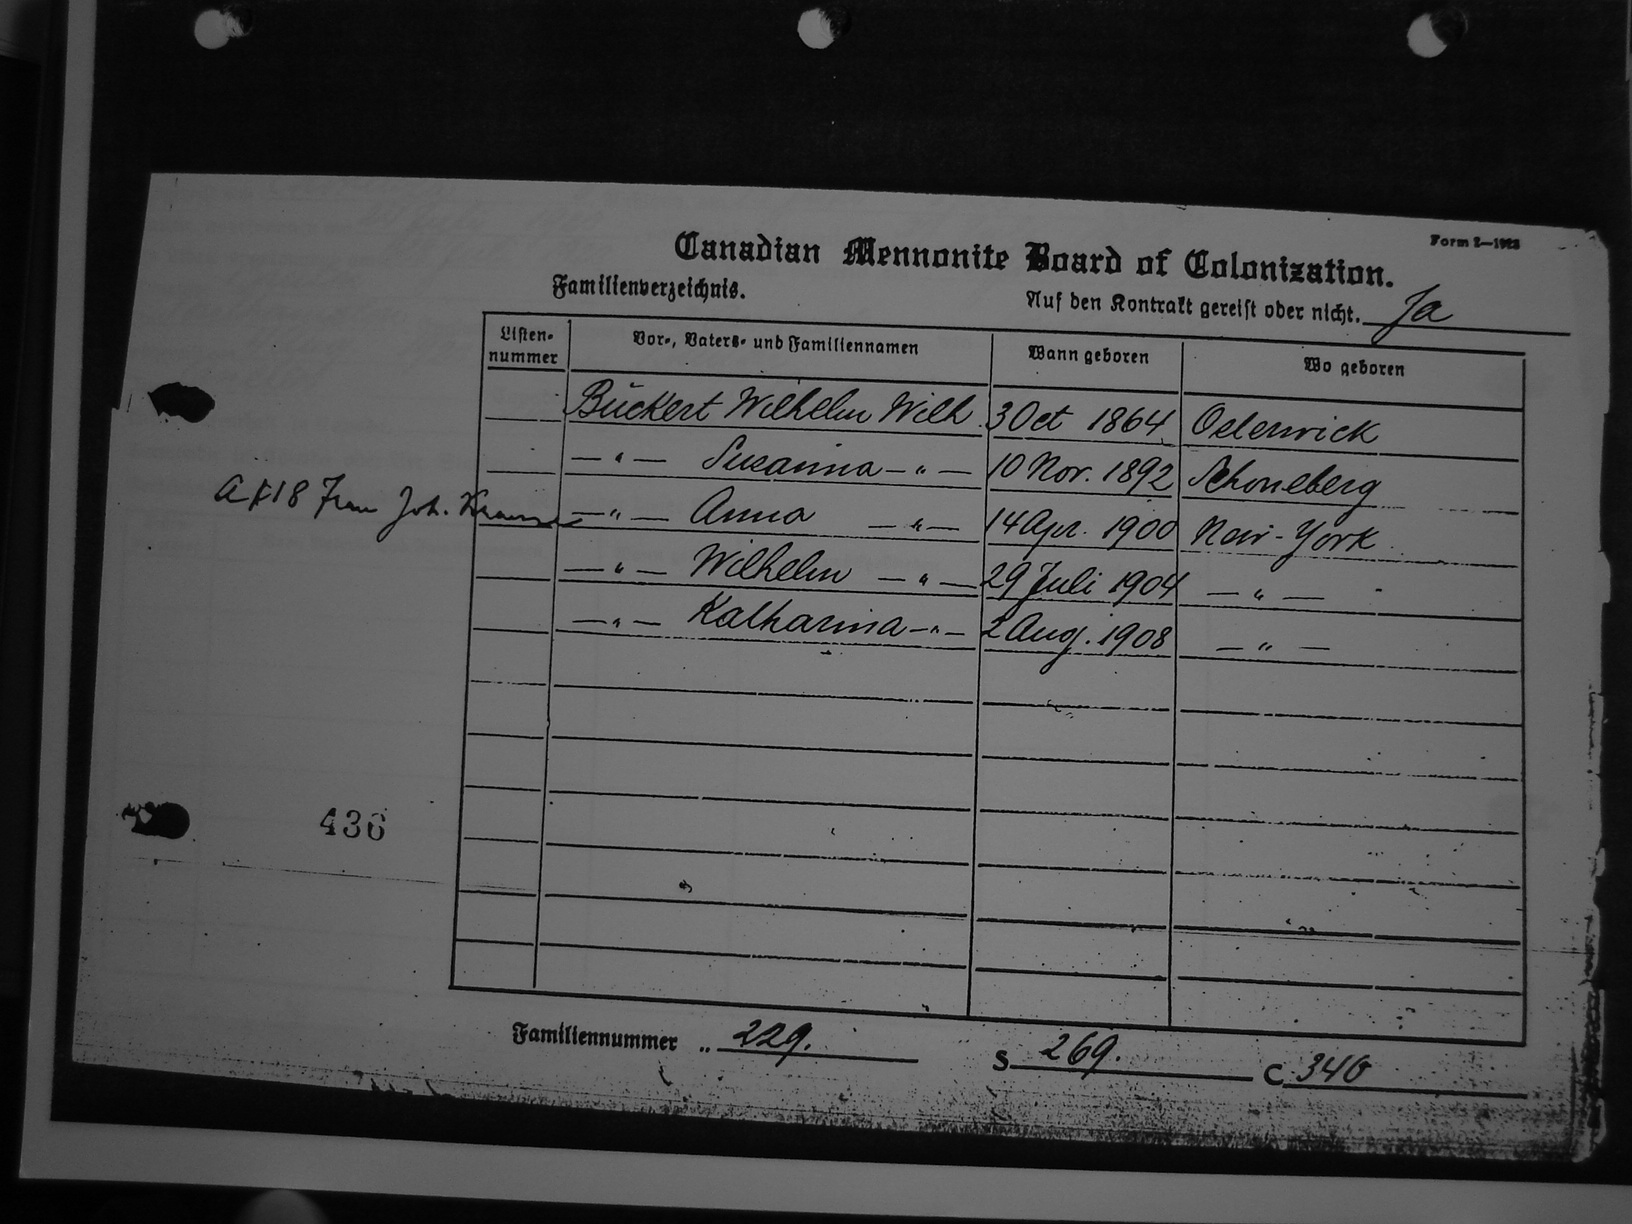 Form 2—1923
Canadian Mennonite Board of Colonization.
Familienverzeichnis.
Auf den Kontrakt gereist oder nicht. Ja
Listen-nummer Vor-, Vaters- und Familiennamen Wann geboren Wo geboren
Bückert Wilhelm Wilh. 3 Oct 1864 Osterwick
—"— Susanna —"— 10 Nov. 1892 Schoneberg
Frau Joh. —"— Anna —"— 14 Apr. 1900 New-York
—"— Wilhelm —"— 29 Juli 1904 —"—
—"— Katharina —"— 2 Aug. 1908 —"—
436
Familiennummer .. 229. S 269. C 340